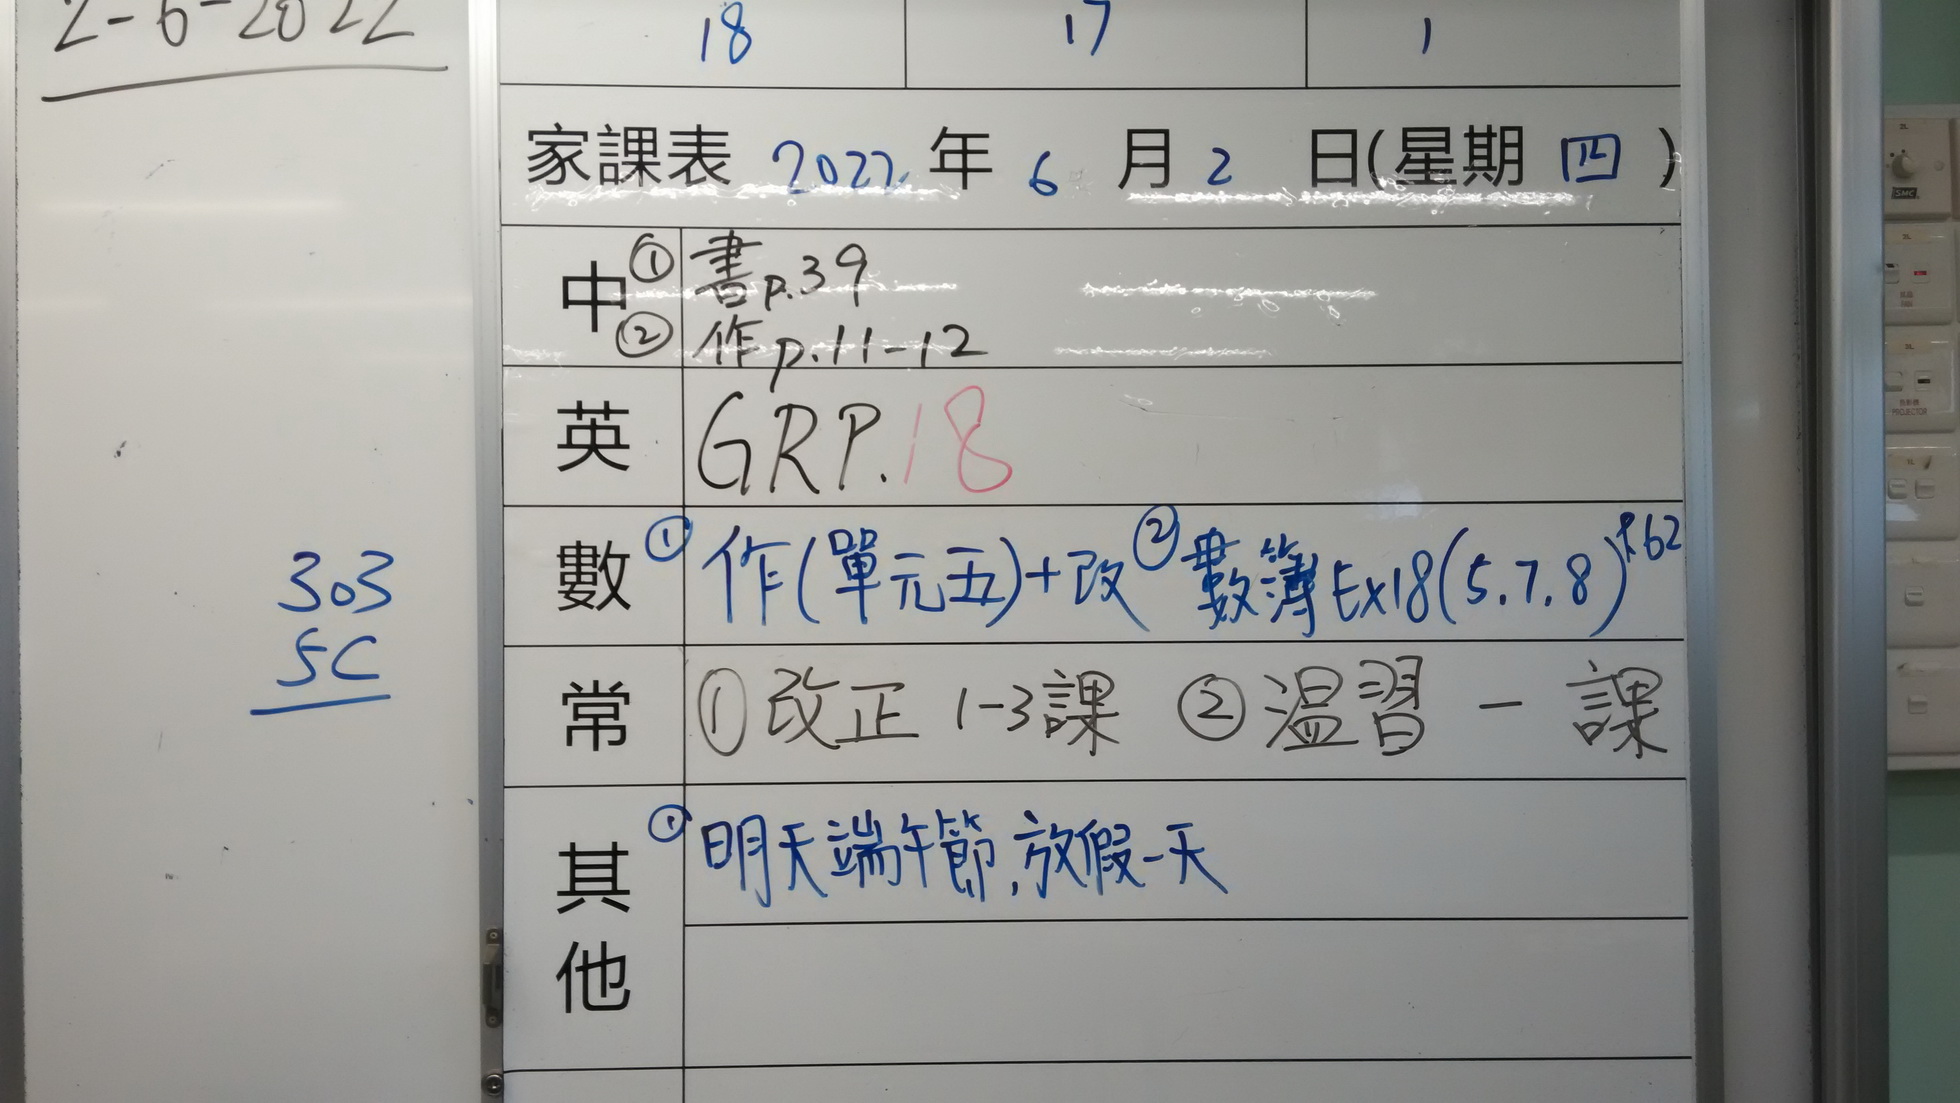 2-6-2022
18 17 1
家課表 2022 年 6 月 2 日(星期 四 )
中 ① 書p.39
② 作p.11-12
英 GRP.18
數 ① 作(單元五)+改 ② 數簿 Ex18(5.7.8) P.62
常 ① 改正 1-3課 ② 温習 一 課
其他 ① 明天端午節,放假一天
303
5C
SMC
PROJECTOR